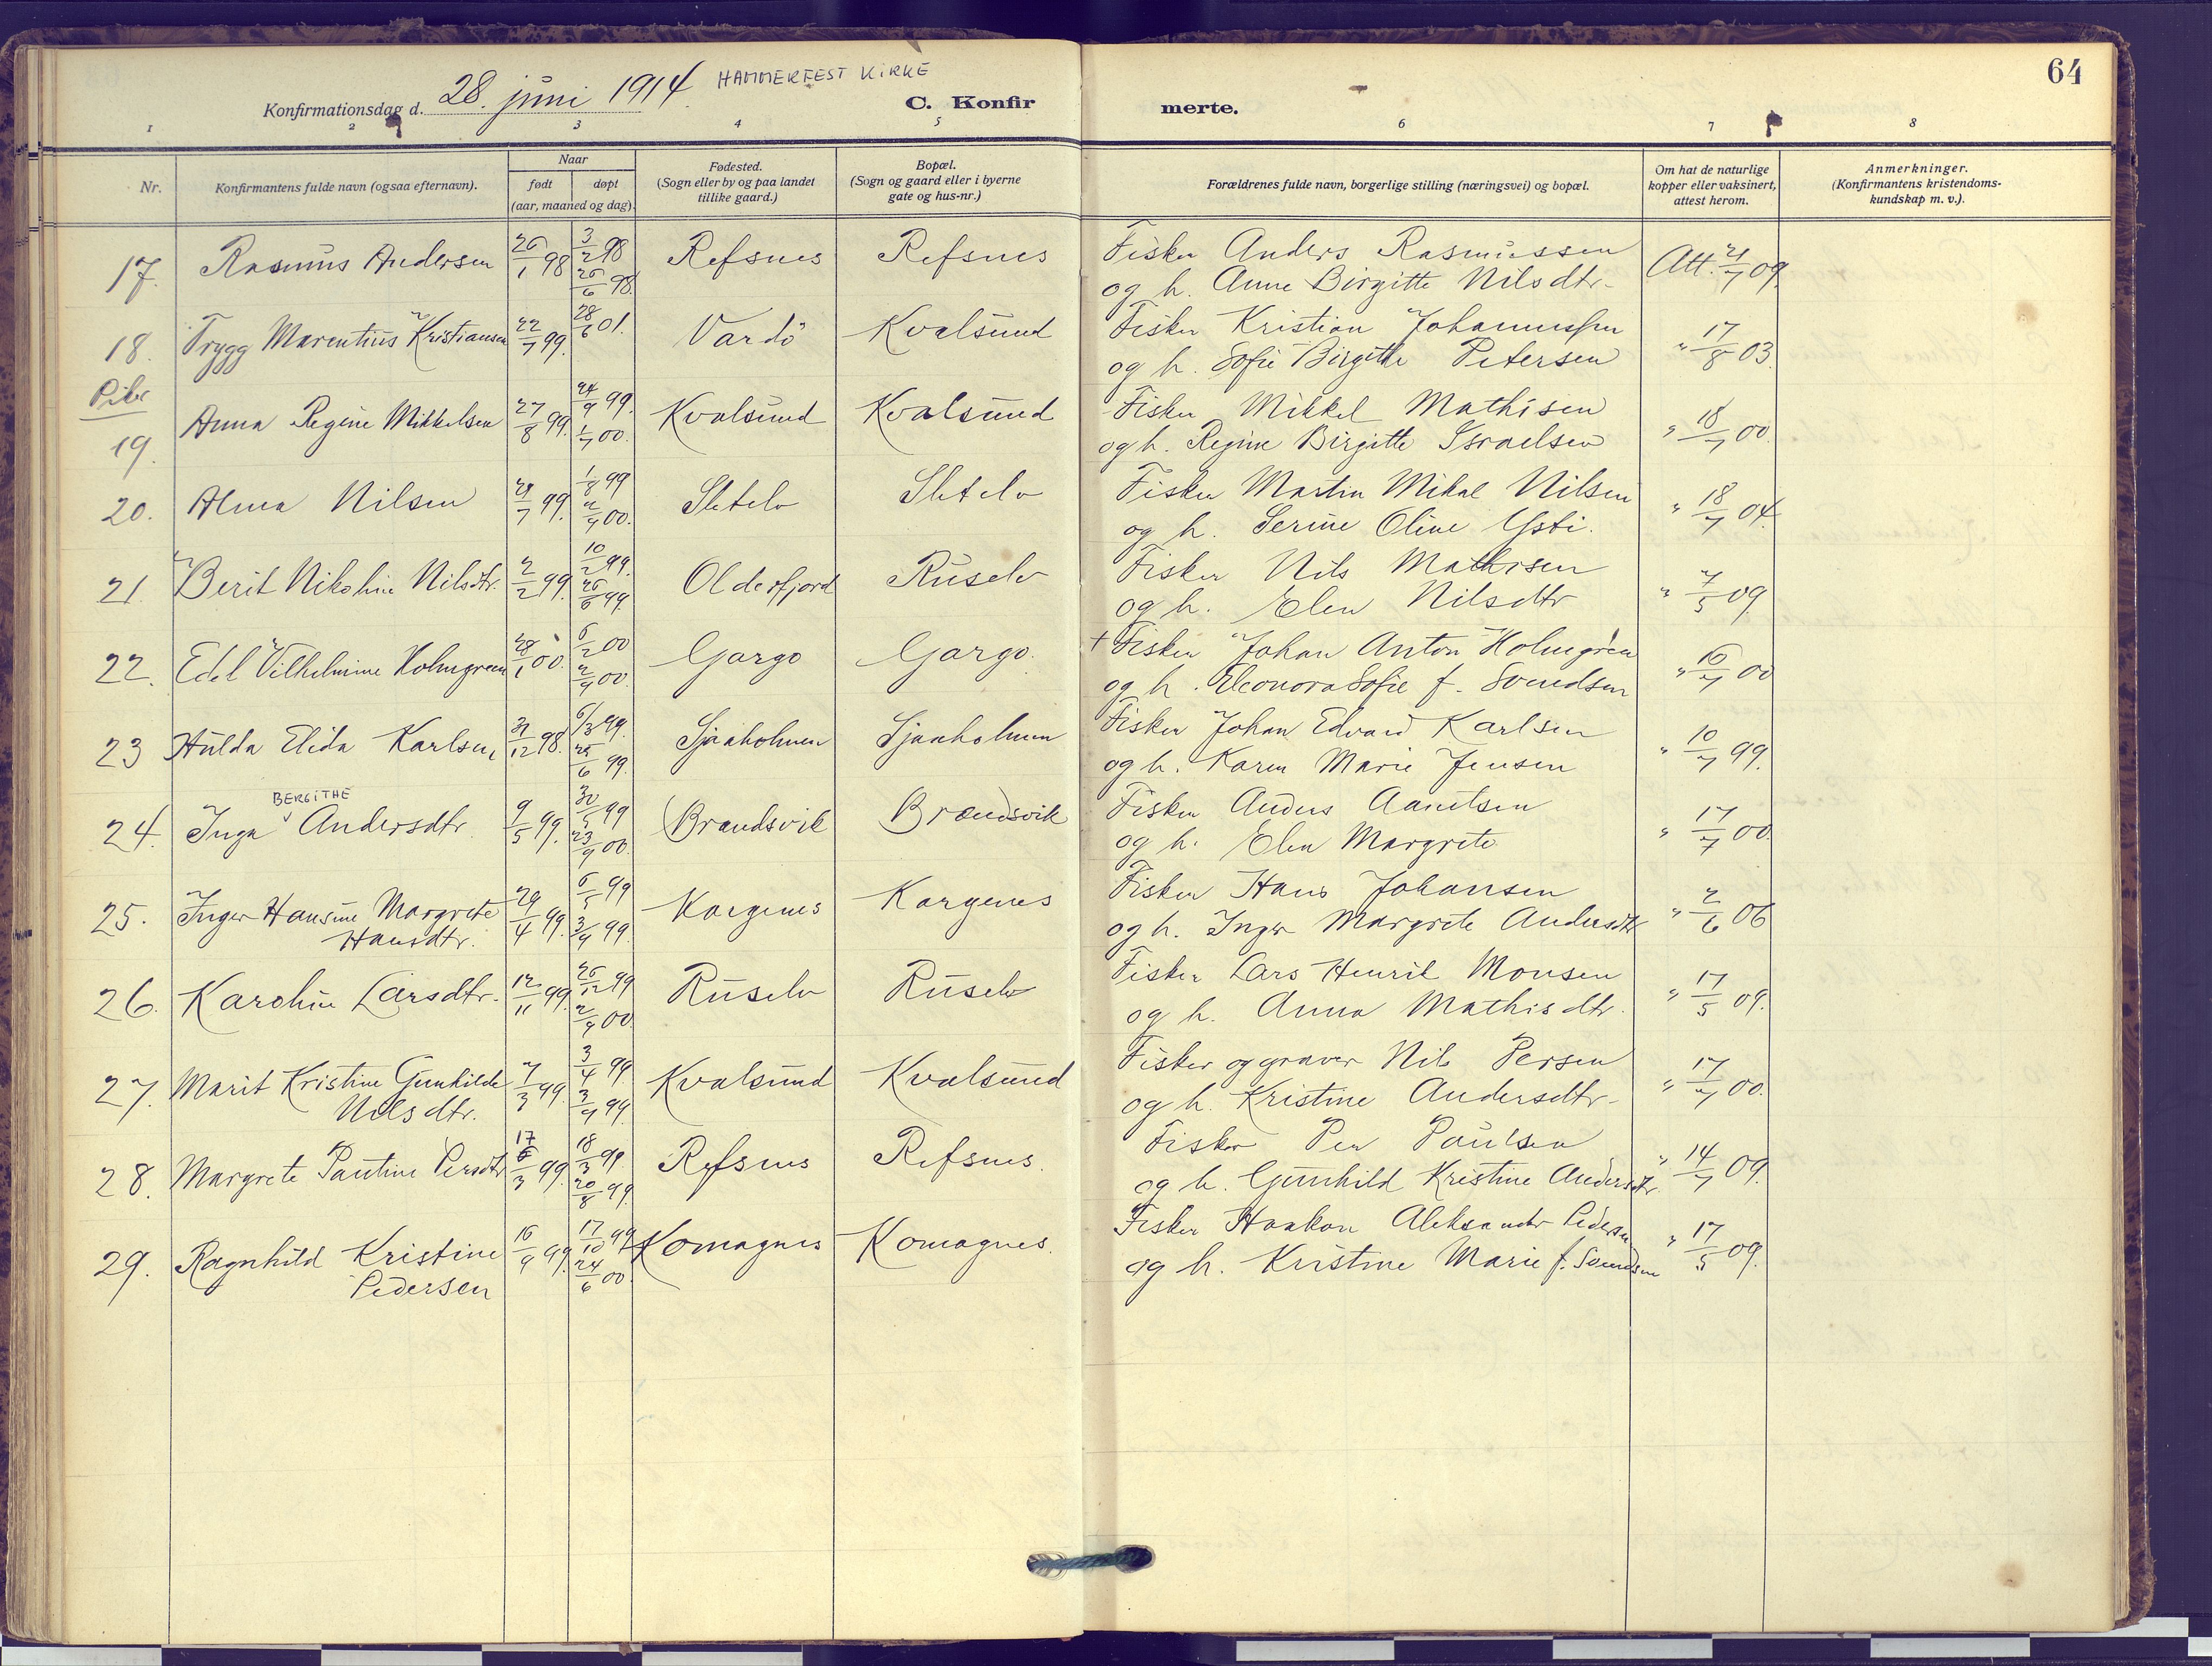 64
Konfirmationsdag d. 28. juni 1914. HAMMERFEST KIRKE
C. Konfirmerte.
1 2 3 4 5 6 7 8
Nr.
Konfirmantens fulde navn (ogsaa efternavn).
Naar
født
døpt
(aar, maaned og dag).
Fødested.
(Sogn eller by og paa landet
tillike gaard.)
Bopæl.
(Sogn og gaard eller i byerne
gate og hus-nr.)
Forældrenes fulde navn, borgerlige stilling (næringsvei) og bopæl.
Om hat de naturlige
kopper eller vaksinert,
attest herom.
Anmerkninger.
(Konfirmantens kristendoms-
kundskap m. v.).
17. Rasmus Andersen 26/1 98 3/2 98 Refsnes Refsnes Fisker Anders Rasmussen Att. 21/7 09.
26/6 98. og h. Anne Birgitte Nilsdtr.
18. Trygg Marentius Kristiansen 22/7 99. 28/6 01. Vardö Kvalsund Fisker Kristian Johannessen " 17/8 03.
og h. Sofie Birgitte Petersen
Piker
19. Anna Regine Mikkelsen 27/8 99. 24/9 99. Kvalsund Kvalsund Fisker Mikkel Mathisen " 18/7 00.
1/7 00. og h. Regine Birgitte Israelsen
20. Alma Nilsen 21/7 99. 1/8 99 Sletelv Sletelv Fisker Martin Mikal Nilsen " 18/7 04.
2/9 00. og h. Serine Oline Ysti.
21. Berit Nikoline Nilsdtr. 2/2 99. 10/2 99. Olderfjord Ruselv Fisker Nils Mathisen " 7/5 09
26/6 99. og h. Elen Nilsdtr
22. Edel Vilhelmine Holmgreen 28/1 00. 6/2 00 Gargo Gargo. + Fisker Johan Anton Holmgreen " 16/7 00
2/9 00. og h. Eleonora Sofie f. Svendsen
23 Hulda Elida Karlsen 31/12 98. 6/3 99. Sjaaholmen Sjaaholmen Fisker Johan Edvard Karlsen " 10/7 99.
25/6 99. og h. Karen Marie Jensen
BERGITHE
24. Inga Andersdtr. 9/5 99. 30/5 99 Brændsvik Brændsvik Fisker Anders Aanetsen " 17/7 00.
23/9 00. og h. Elen Margrete
25. Inger Hansine Margrete 29/4 99. 6/5 99 Kargenes Kargenes Fisker Hans Johansen " 2/6 06
Hansdtr. 3/9 99. og h. Inger Margrete Andersdtr
26. Karoline Larsdtr. 12/11 99. 26/12 99 Ruselv Ruselv Fisker Lars Henrik Monsen " 17/5 09.
2/9 00. og h. Anna Mathisdtr.
27. Marit Kristine Gunhilde 7/3 99. 3/4 99 Kvalsund Kvalsund Fisker og graver Nils Persen " 17/7 00.
Nilsdtr. 3/9 99. og h. Kristine Andersdtr.
28. Margrete Pauline Persdtr 17/3 99. 18/3 99. Refsnes Refsnes. Fisker Per Paulsen " 14/7 09.
20/8 99. og h. Gunhild Kristine Andersdtr.
29. Ragnhild Kristine 16/9 99. 17/10 99 Komagnes Komagnes. Fisker Haakon Aleksander Pedersen " 17/5 09.
Pedersen 24/6 00. og h. Kristine Marie f. Svendsen